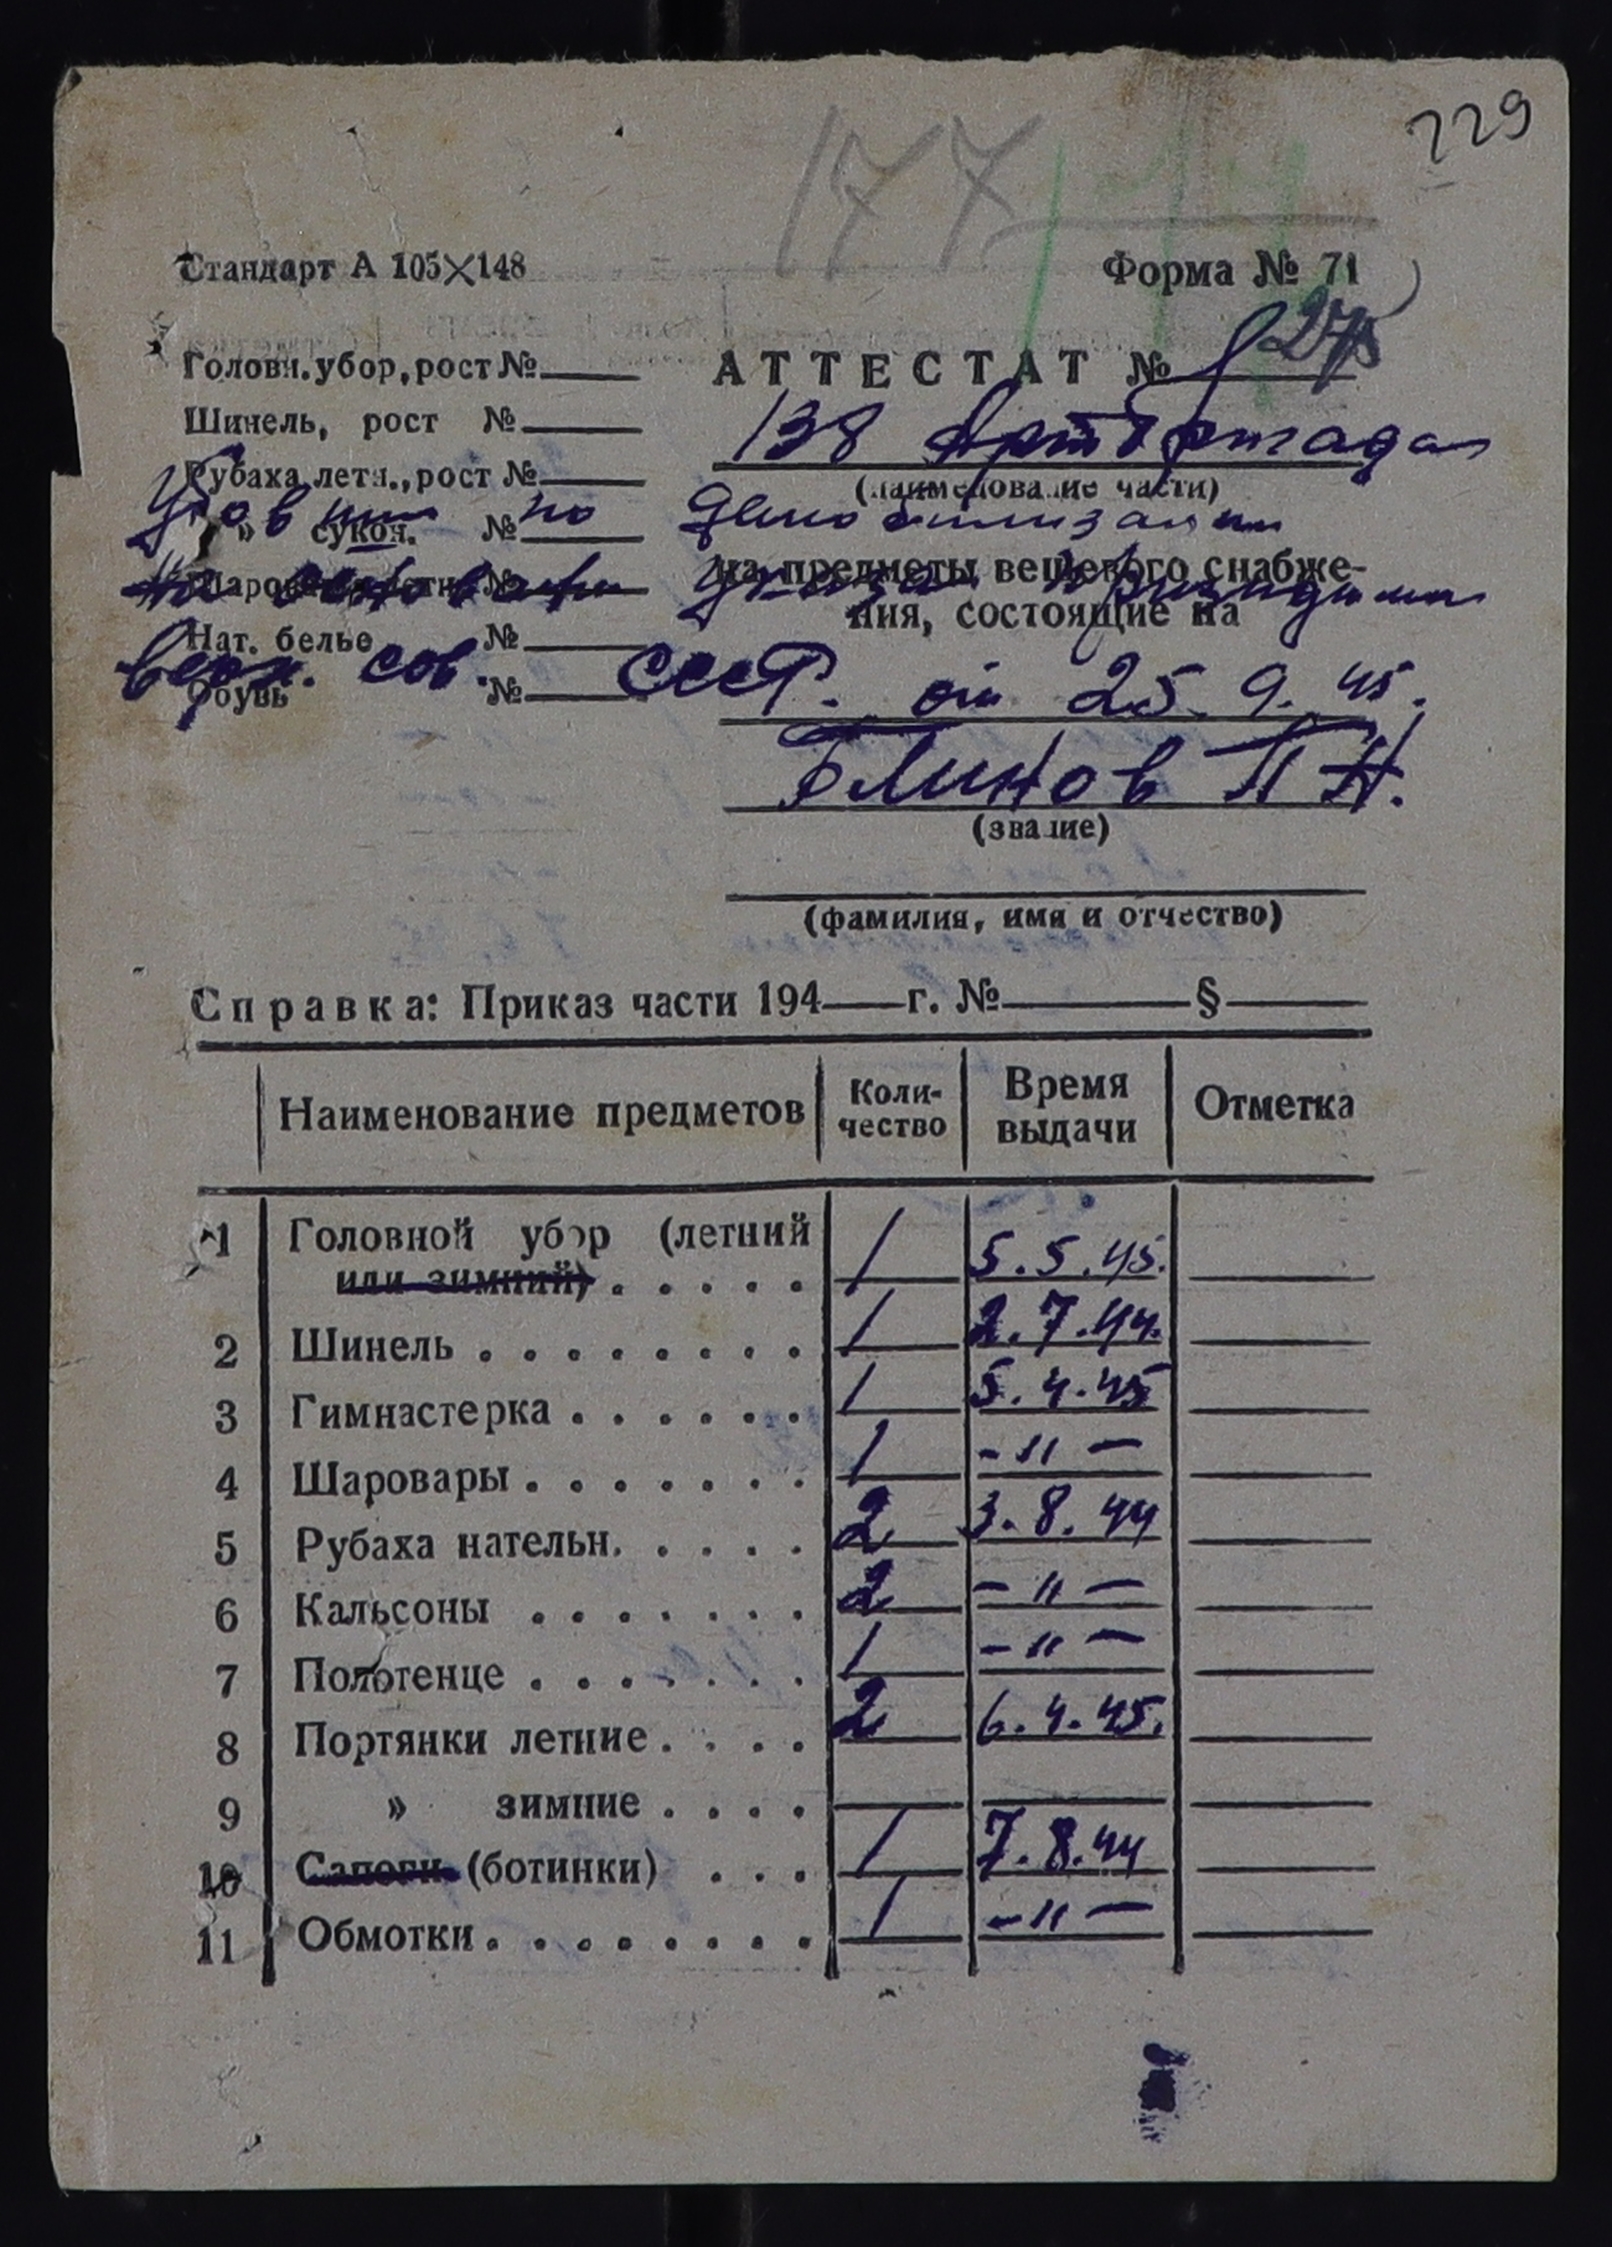 229
177
Стандарт А 105×148
Форма № 71
Головн. убор, рост №
АТТЕСТАТ № 275
Шинель, рост №
138 Артбригада
Рубаха летн., рост №
(наименование части)
» сукон. №
Уволен по демобилизации
Шаровары летн. №
на предметы вещевого снабже-
ния, состоящие на
на основании указа президиума
Нат. белье №
верх. сов. СССР. от 25.9.45.
Обувь №
Блинов П Н.
(звание)
(фамилия, имя и отчество)
Справка: Приказ части 194 г. № §
Наименование предметов Коли-чество Время выдачи Отметка
1 Головной убор (летний
или зимний) . . . . . 1 5.5.45.
2 Шинель . . . . . . . . 1 2.7.44.
3 Гимнастерка . . . . . . 1 5.4.45
4 Шаровары . . . . . . . 1 -"-
5 Рубаха нательн. . . . . 2 3.8.44
6 Кальсоны . . . . . . . 2 -"-
7 Полотенце . . . . . . . 1 -"-
8 Портянки летние . . . . 2 6.4.45.
9 » зимние . . . .
10 Сапоги (ботинки) . . . 1 7.8.44
11 Обмотки . . . . . . . . 1 -"-